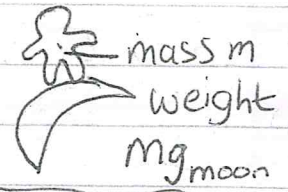 mass m
weight
mgmoon